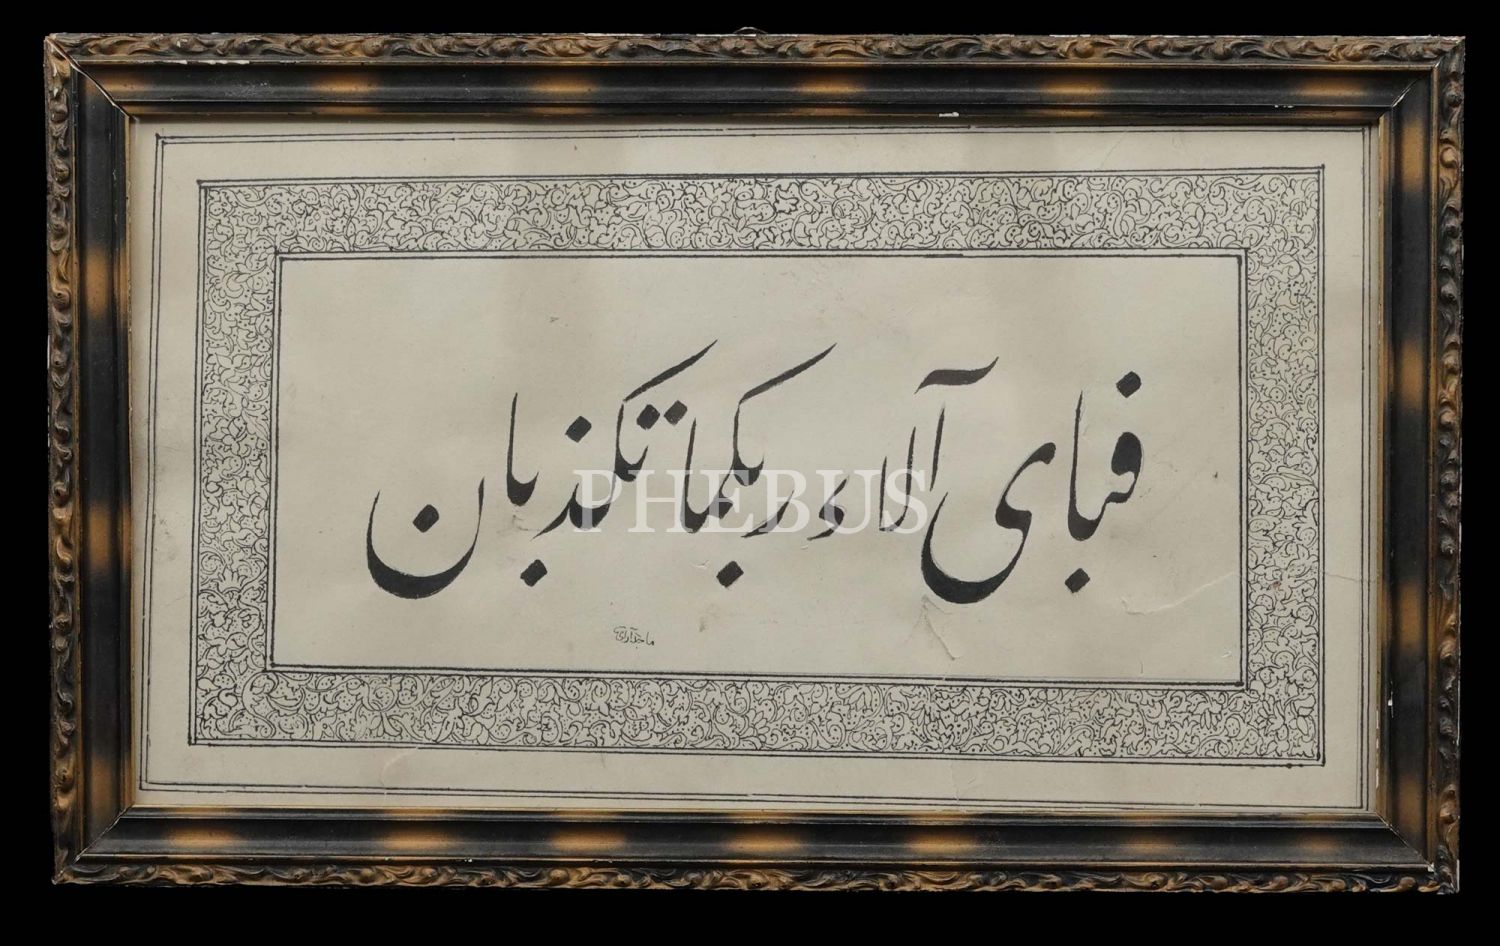 فبای آلاء ربکما تکذبان
PHEBUS